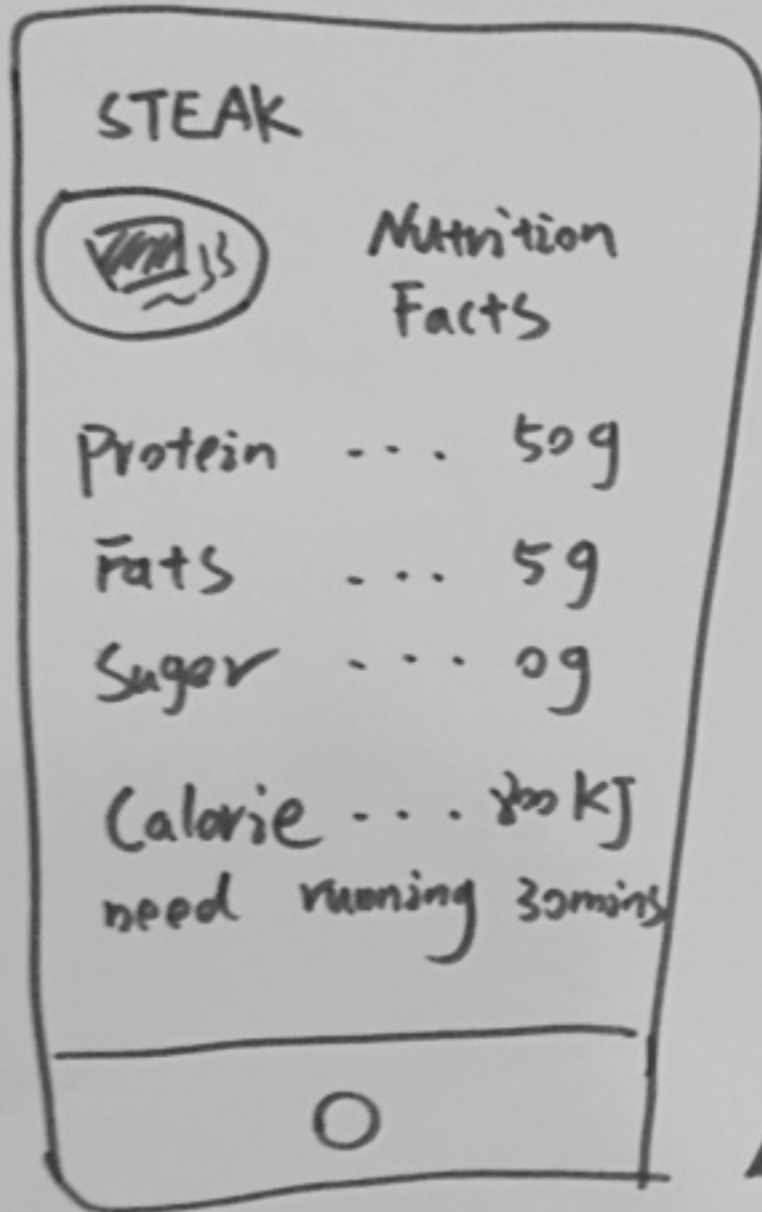 STEAK
Nutrition
Facts
Protein ... 50g
Fats ... 5g
Suger ... 0g
Calorie ... KJ
need running 30mins